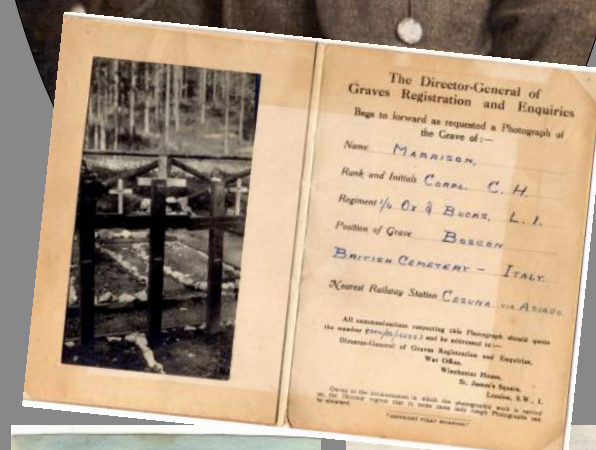 The Director-General of
Graves Registration and Enquiries
Begs to forward as requested a Photograph of
the Grave of :—
Name MARRISON,
Rank and Initials CORPL. C. H.
Regiment 1/4 OX & BUCKS, L. I.
Position of Grave BOSCON
BRITISH CEMETERY - ITALY.
Nearest Railway Station CESUNA VIA ASIAGO
All communications respecting this Photograph should quote
the number ( ) and be addressed to :—
Director-General of Graves Registration and Enquiries,
War Office,
Winchester House,
St. James's Square,
London, S.W., 1.
Owing to the circumstances in which the photographic work is carried
on, the Director regrets that in some cases only rough Photographs can
be obtained.